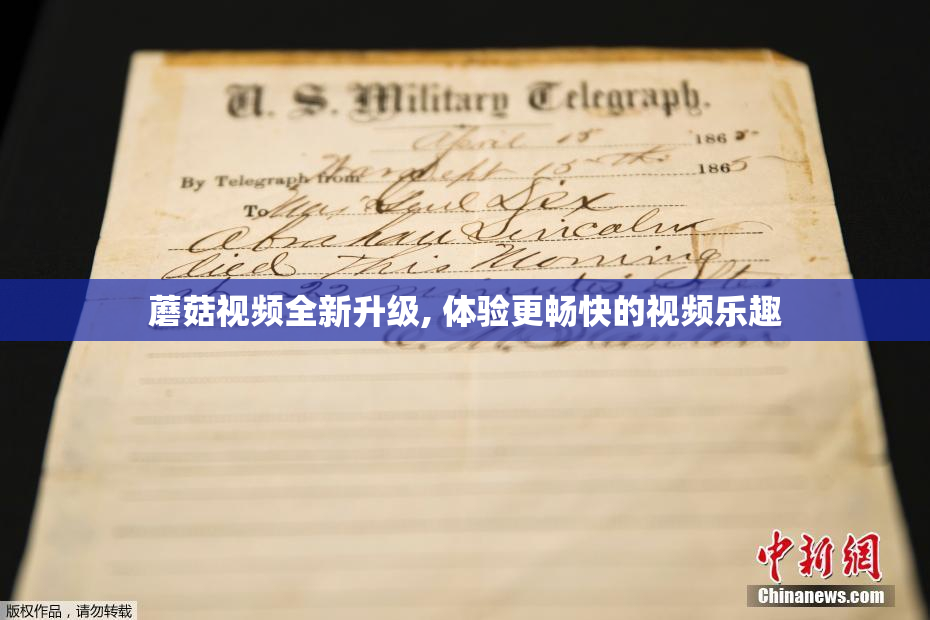 U. S. Military Telegraph.
April 15 1865-
By Telegraph from War Dept 15th 1865
To Maj Genl Dix
Abraham Lincoln
died This Morning
at 22 minutes after
蘑菇视频全新升级, 体验更畅快的视频乐趣
Stanton
中新网
Chinanews.com
版权作品，请勿转载